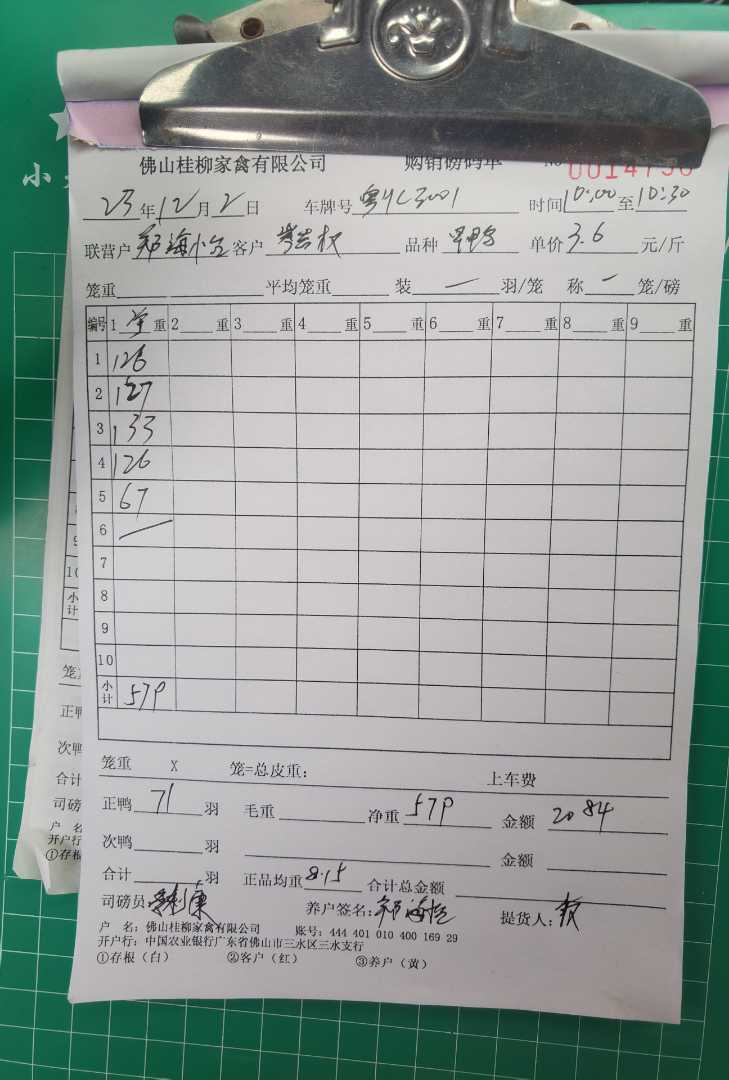 小
佛山桂柳家禽有限公司 购销磅码单 No 0014730
23年12月2日 车牌号 时间10:00至10:30
联营户 郑海 客户 权 品种 单价3.6元/斤
笼重 平均笼重 装 一 羽/笼 称 一 笼/磅
编号 1 重 2 重 3 重 4 重 5 重 6 重 7 重 8 重 9 重
1 126
2 127
3 133
4 126
5 67
6 一
7
8
9
10
小计 579
笼重 X 笼=总皮重: 上车费
正鸭 71 羽 毛重 净重 579 金额 2084
次鸭 羽 金额
合计 羽 正品均重 8.15 合计总金额
司磅员 康 养户签名: 郑海 提货人:
户 名: 佛山桂柳家禽有限公司 账号: 444 401 010 400 169 29
开户行: 中国农业银行广东省佛山市三水区三水支行
①存根(白) ②客户(红) ③养户(黄)